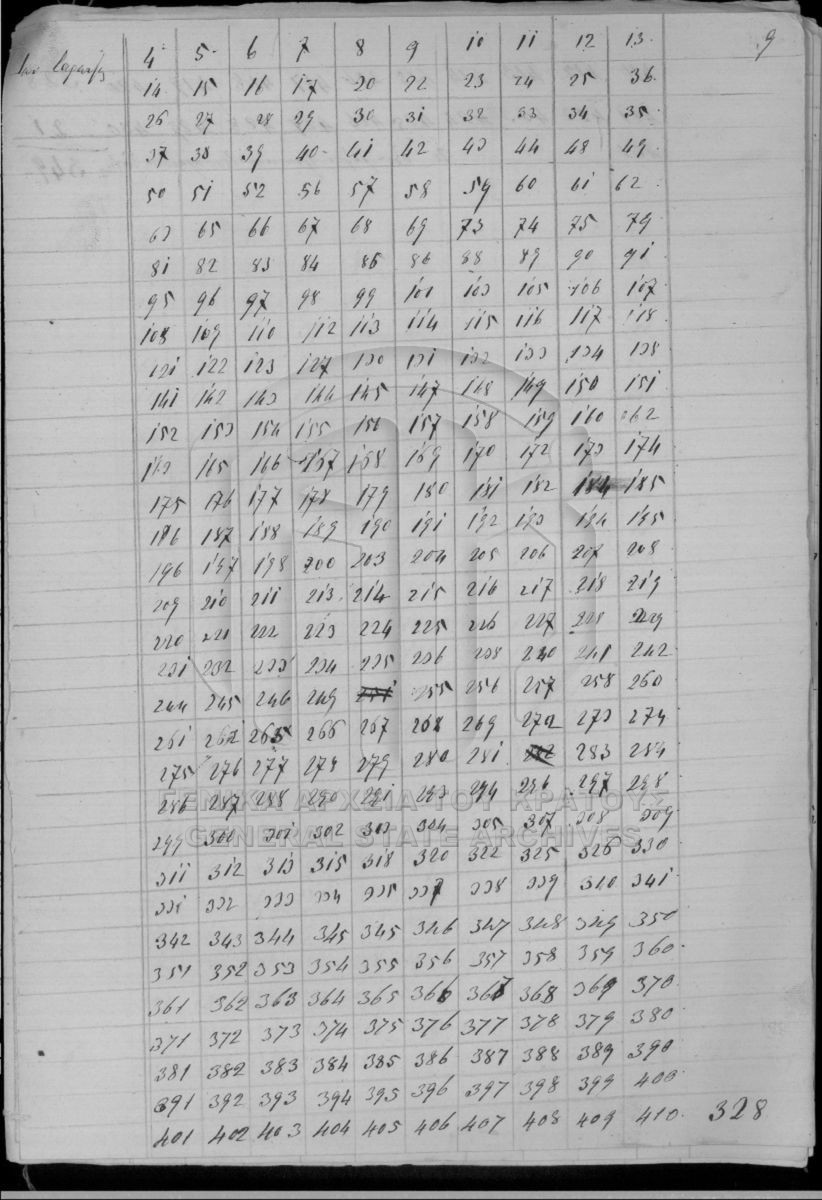 9
4 5 6 7 8 9 10 11 12 13
14 15 16 17 20 22 23 24 25 36
26 27 28 29 30 31 32 33 34 35
37 38 39 40 41 42 43 44 48 49
50 51 52 56 57 58 59 60 61 62
63 65 66 67 68 69 73 74 75 79
81 82 83 84 86 86 88 89 90 91
95 96 97 98 99 101 103 105 106 107
108 109 110 112 113 114 115 116 117 118
121 122 123 127 130 131 132 133 134 138
141 142 143 144 145 147 148 149 150 151
152 153 154 155 156 157 158 159 160 162
163 165 166 167 168 169 170 172 173 174
175 176 177 178 179 180 181 182 184 185
186 187 188 189 190 191 192 193 194 195
196 197 198 200 203 204 205 206 207 208
209 210 211 213 214 215 216 217 218 219
220 221 222 223 224 225 226 227 228 229
231 232 233 234 235 236 238 240 241 242
244 245 246 249 255 256 257 258 260
261 262 265 266 267 268 269 272 273 274
275 276 277 278 279 280 281 282 283 284
286 287 288 290 291 293 294 296 297 298
ΓΕΝΙΚΑ ΑΡΧΕΙΑ ΤΟΥ ΚΡΑΤΟΥΣ
299 300 301 302 303 304 305 307 308 309
GENERAL STATE ARCHIVES
311 312 313 315 318 320 322 325 326 330
331 332 333 334 335 337 338 339 340 341
342 343 344 345 345 346 347 348 349 350
351 352 353 354 355 356 357 358 359 360
361 362 363 364 365 366 367 368 369 370
371 372 373 374 375 376 377 378 379 380
381 382 383 384 385 386 387 388 389 390
391 392 393 394 395 396 397 398 399 400
401 402 403 404 405 406 407 408 409 410 328